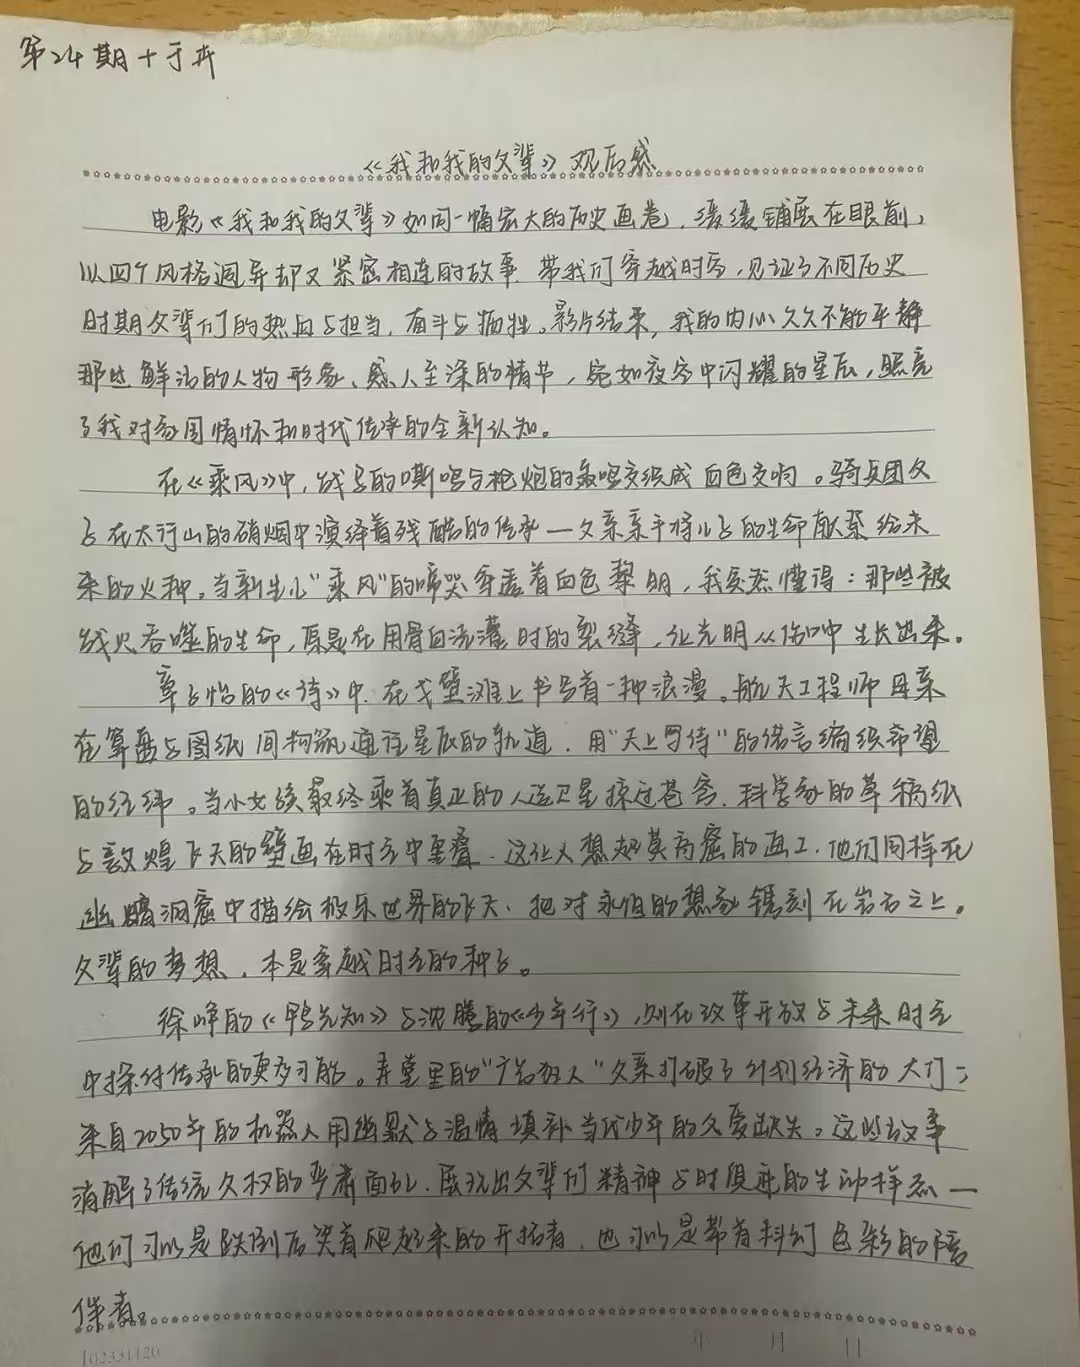 第24期十于卉
《我和我的父辈》观后感
电影《我和我的父辈》如同一幅宏大的历史画卷，缓缓铺展在眼前，
以四个风格迥异却又紧密相连的故事，带我们穿越时空，见证了不同历史
时期父辈们的热血与担当，奋斗与牺牲。影片结束，我的内心久久不能平静
那些鲜活的人物形象、感人至深的情节，宛如夜空中闪耀的星辰，照亮
了我对家国情怀和时代传承的全新认知。
在《乘风》中，战马的嘶鸣与枪炮的轰鸣交织成血色交响。骑兵团父
子在太行山的硝烟中演绎着残酷的传承—父亲亲手将儿子的生命献祭给未
来的火种。当新生儿"乘风"的啼哭穿透着血色黎明，我突然懂得：那些被
战火吞噬的生命，原是在用骨血浇灌时的裂缝，让光明从伤口中生长出来。
章子怡的《诗》中，在戈壁滩上书写着一种浪漫。航天工程师母亲
在算盘与图纸间构筑通往星辰的轨道，用"天上写诗"的谎言编织希望
的经纬。当小女孩最终乘着真正的人造卫星掠过苍穹，科学家的草稿纸
与敦煌飞天的壁画在时空中重叠，这让人想起莫高窟的画工，他们同样在
幽暗洞窟中描绘极乐世界的飞天，把对永恒的想象镌刻在岩石之上。
父辈的梦想，本是穿越时空的种子。
徐峥的《鸭先知》与沈腾的《少年行》，则在改革开放与未来时空
中探讨传承的更多可能。弄堂里的"广告狂人"父亲打破了计划经济的大门；
来自2050年的机器人用幽默与温情填补当代少年的父爱缺失。这些故事
消解了传统父权的严肃面孔，展现出父辈们精神与时俱进的生动样态—
他们可以是跌倒后笑着爬起来的开拓者，也可以是带着科幻色彩的陪
伴者。
102331120
年 月 日